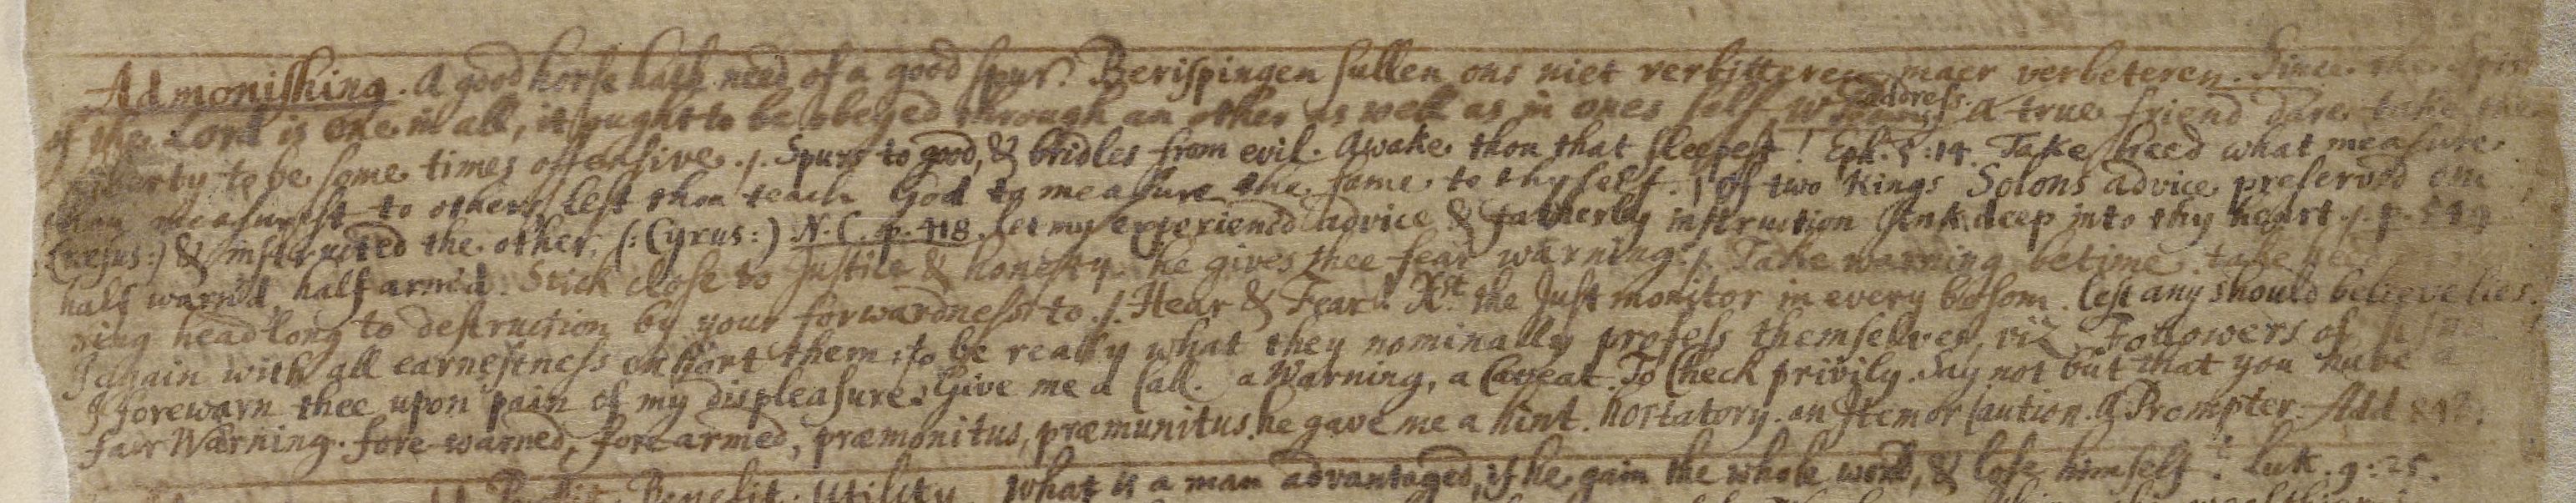 Admonishing. A good horse hath need of a good spur. Berispingen sullen ons niet verbitteren, maer verbeteren. Since the Spirit
of the Lord is one in all, it ought to be obeyed through an other as well as in ones self. address. A true friend dare take the
liberty to be some times offensive ./. Spurs to good, & bridles from evil. Awake thou that sleepest! Eph. 5:14. Take heed what measure
thou measurest to others, lest thou teach God to measure the same to thyself. / Of two Kings Solons advice preserved one
(Cresus:) & instructed the other, (: Cyrus:) N. C. p. 418. let my experienc'd advice & fatherly instruction sink deep into thy heart ./. p.
half warn'd, half arm'd. Stick close to Justice & honesty. he gives thee fear warning ./. Take warning betime. take heed
ning headlong to destruction by your forwardness to ./. Hear & Fear. Xst. the Just monitor in every bosom. lest any should believe lies.
I again with all earnestness exhort them, to be really what they nominally profess themselves, viz. Followers of
I forewarn thee upon pain of my displeasure. Give me a Call. a Warning, a Caveat. To Check privily. Say not but that you have a
fair Warning. fore-warned, fore-armed, præmonitus, præmunitus. he gave me a hint. hortatory. an Item or Caution. A Prompter. Add
Profit. Benefit. Utility. What is a man advantaged, if he gain the whole world, & lose himself? Luk. 9:25.